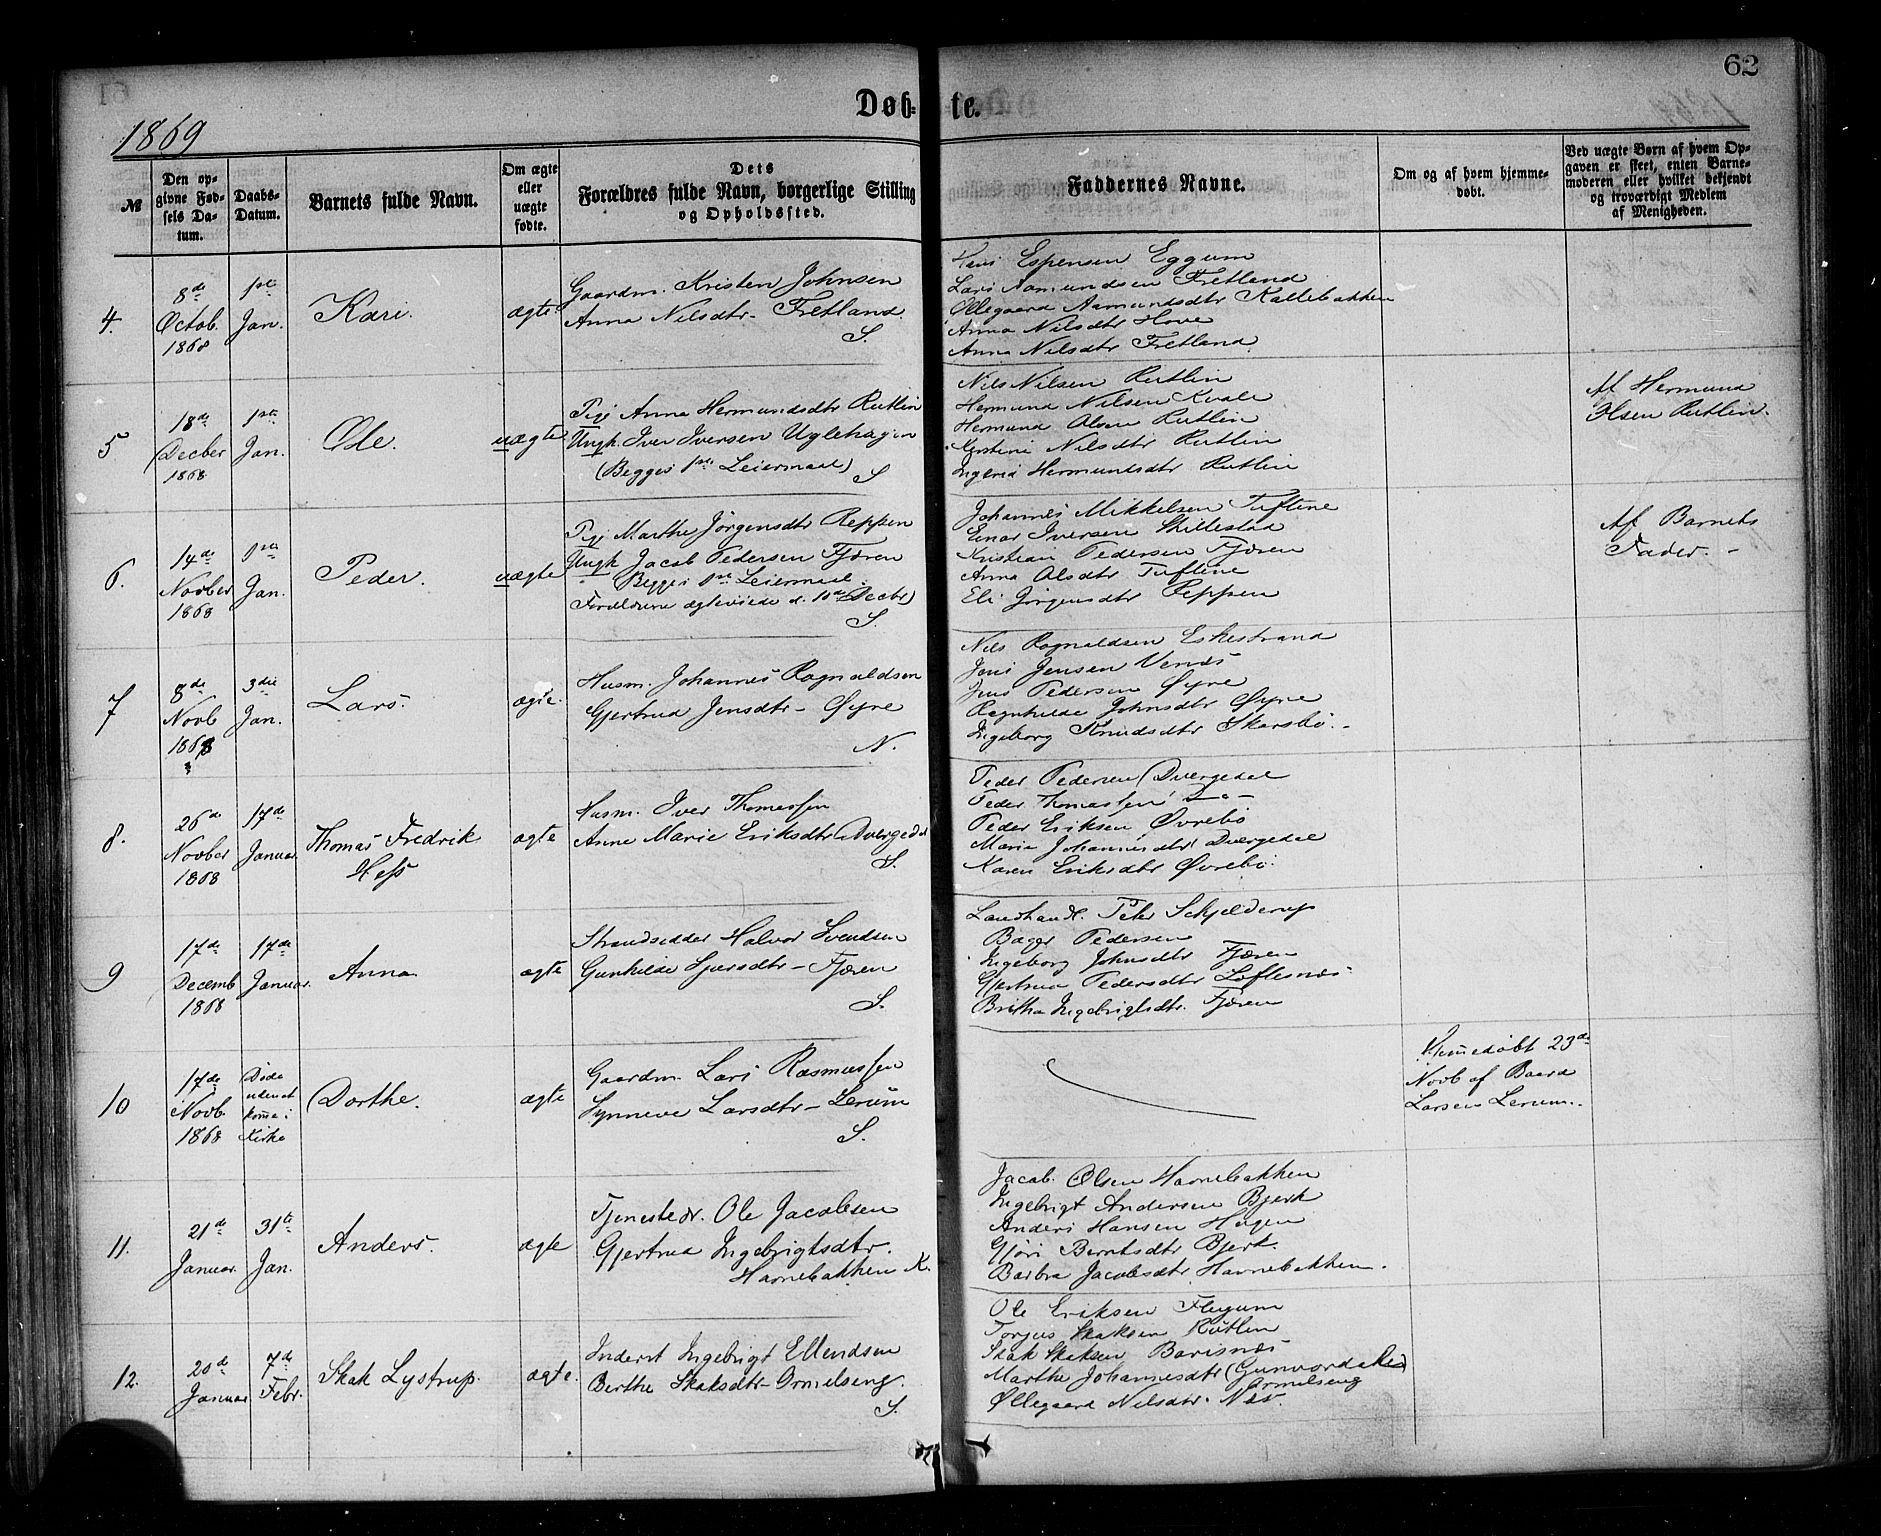 62
Døb-te.
1869
№
Den op-
givne Fød-
sels Da-
tum.
Daabs-
Datum.
Barnets fulde Navn.
Om ægte
eller
uægte
fødte.
Dets
Forældres fulde Navn, borgerlige Stilling
og Opholdssted.
Faddernes Navne.
Om og af hvem hjemme-
døbt.
Ved uægte Børn af hvem Op-
gaven er skeet, enten Barne-
moderen eller hvilket bekjendt
og troværdigt Medlem
af Menigheden.
4.
8de
Octob.
1868
1ste
Jan.
Kari.
ægte
Gaardm. Kristen Johnsen
Anna Nilsdtr - Fretland
S.
Hans Espensen Eggum
Lars Aamundsen Fretland
Øllegaard Aamundsdtr Kallebakken
Anna Nilsdtr Hove
Anna Nilsdtr Fretland
5
18de
Decber
1868
1ste
Jan.
Ole.
uægte
Pige Anna Hermundsdtr Rutlin
Ungk. Iver Iversen Uglehagen
(Begges 1ste Leiermaal)
S
Nils Nilsen Rutlin
Hermund Nilsen Kvale
Hermund Olsen Rutlin
Kerstine Nilsdtr Rutlin
Ingerid Hermundsdtr Rutlin
Af Hermund
Olsen Rutlin.
6.
14de
Novber
1868
1ste
Jan.
Peder.
uægte
Pige Marthe Jörgensdtr Reppen
Ungk Jacob Pedersen Fjæren
Begges 1ste Leiermaal.
Forældrene ægteviede d. 10de Decbr)
S.
Johannes Mikkelsen Tuftene
Einar Iversen Skillestad
Kristian Pedersen Fjæren
Anna Olsdtr Tuftene
Eli Jörgensdtr Reppen
Af Barnets
Fader. -
7
8de
Novb
1868
3die
Jan.
Lars.
ægte.
Husm. Johannes Ragnaldsen
Gjertrud Jensdtr - Øyre
N.
Nils Ragnaldsen Eskestrand
Jens Jensen Venes
Jens Pedersen Øyre
Ragnhilde Johnsdtr Øyre
Ingeborg Knudsdtr Skarsbö. -
8.
26de
Novber
1868
17de
Januar
Thomas Fredrik
Hess
ægte
Husm. Iver Thomassen
Anne Marie Eriksdtr Dvergedal
S.
Peder Pedersen Dvergedal
Peder Thomassen - " -
Peder Eriksen Øvrebö
Marie Johannesdtr Dvergedal
Karen Eriksdtr Øvrebö.
9
17de
Decemb
1868
17de
Januar.
Anna
ægte
Strandsidder Halvor Svendsen
Gunhilde Sjursdtr - Fjæren
S.
Landhandl. Peter Schjelderup
Bager Pedersen
Ingeborg Johnsdtr Fjæren
Gjertrud Pedersdtr Loftesnes
Britha Ingebrigtsdtr. Fjæren
10
17de
Novb
1868
Døde
uden at
komme i
Kirke
Dorthe.
ægte
Gaardm. Lars Rasmussen
Synneve Larsdtr - Lerum
S.
Hjemmedøbt 23de
Novb af Baard
Larsen Lerum. -
11.
21de
Januar.
31te
Jan.
Anders.
ægte
Tjenestedr. Ole Jacobsen
Gjertrud Ingebrigtsdtr.
Havnebakken K.
Jacob Olsen Havnebakken
Ingebrigt Andersen Bjerk
Anders Hansen Hagen
Gjöri Berntsdtr Bjerk
Barbra Jacobsdtr Havnebakken.
12.
20de
Januar
7de
Febr.
Skak Lystrup.
ægte.
Inderst Ingebrigt Ellendsen
Berthe Skaksdtr - Ormelseng.
S.
Ole Eriksen Flugum
Torjus Skaksen Rutlin
Skak Skaksen Barsnes
Marthe Johannesdtr (Gunvordalen)
Ormelseng
Øllegaard Nilsdtr. Næs.